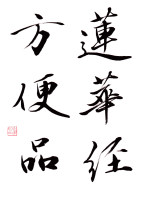 蓮華経
方便品